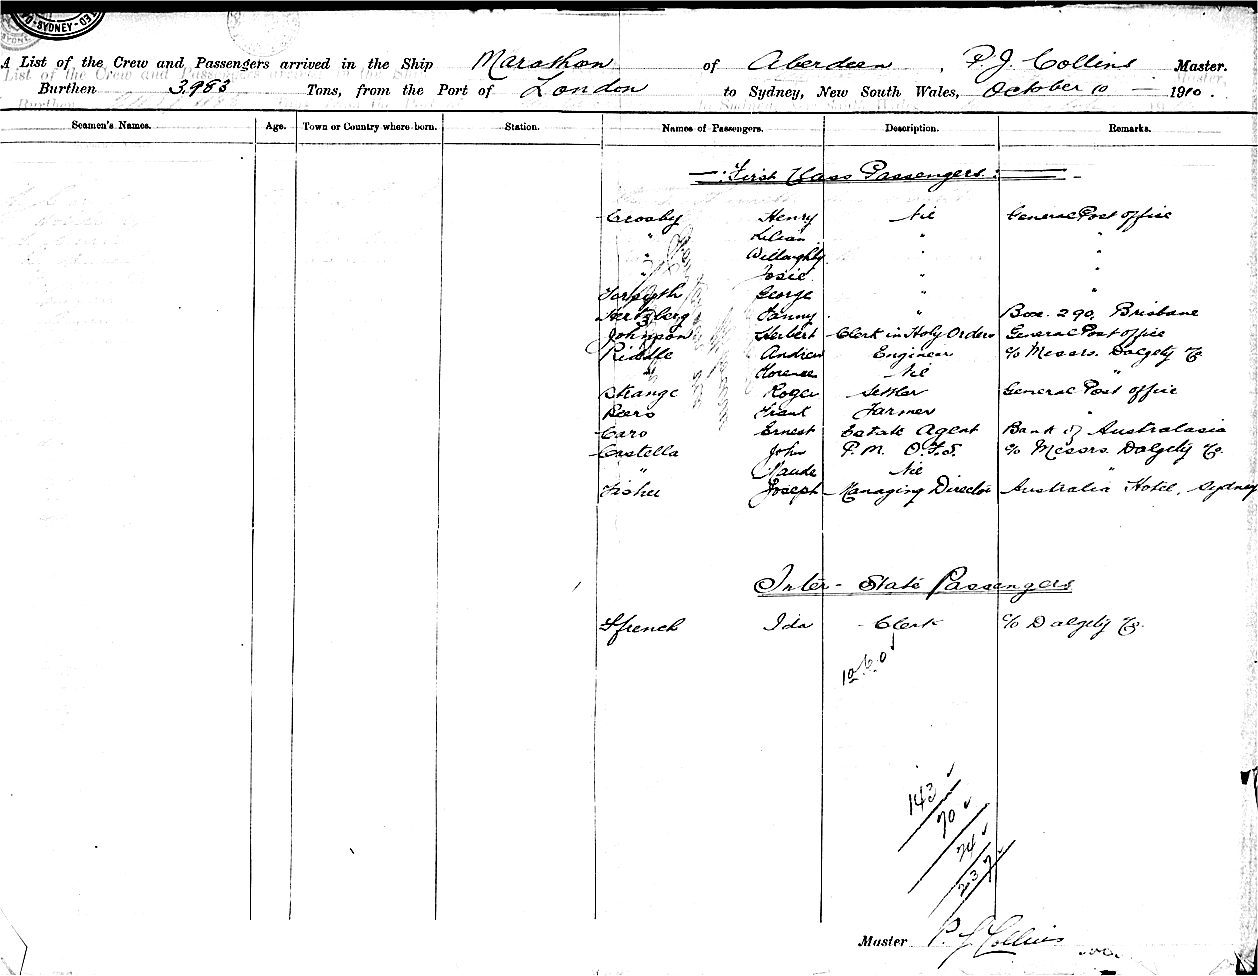 SYDNEY
A List of the Crew and Passengers arrived in the Ship Marathon of Aberdeen, P. J. Collins Master.
Burthen 3983 Tons, from the Port of London to Sydney, New South Wales, October 10 — 1910.
Seamen's Names. Age. Town or Country where born. Station. Names of Passengers. Description. Remarks.
First Class Passengers
Crosby Henry Nil General Post Office
" Lilian " "
" Willoughby " "
" Josie " "
Forsyth George " "
Hertzberg Fanny " Box 290, Brisbane
Johnson Herbert Clerk in Holy Orders General Post Office
Riddle Andrew Engineer c/o Messrs. Dalgety & Co
" Florence Nil "
Strange Roger Settler General Post Office
Beers Frank Farmer "
Caro Ernest Estate Agent Bank of Australasia
Castella John P. M. c/o Messrs Dalgety & Co.
" Maude Nil "
Fisher Joseph Managing Director Australia Hotel, Sydney
Inter-State Passengers
Ffrench Ida Clerk c/o Dalgety & Co.
143
70
74
237
Master P J Collins